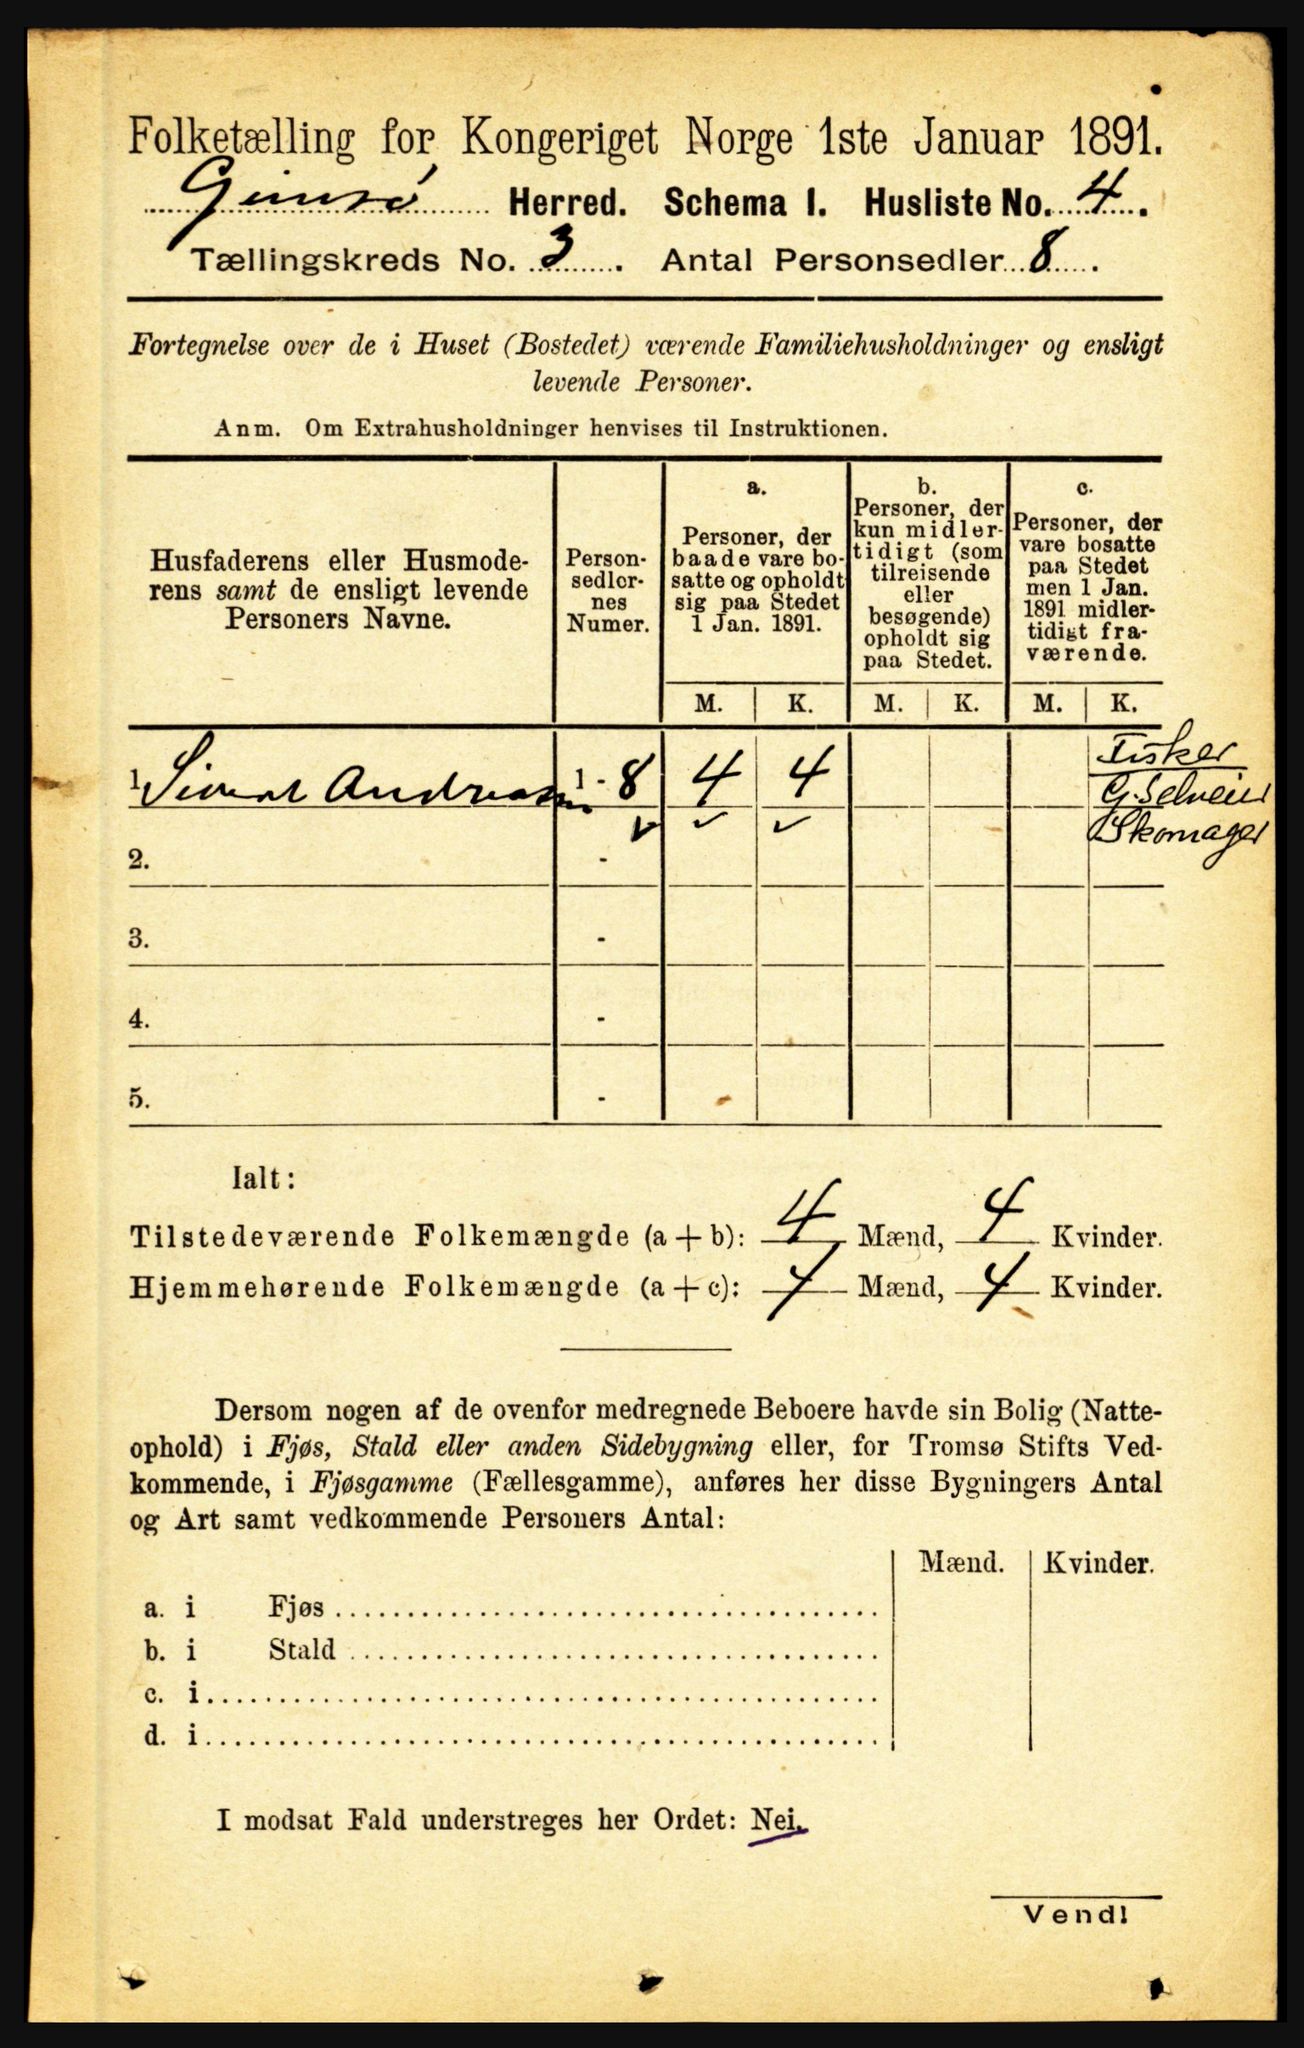 Folketælling for Kongeriget Norge 1ste Januar 1891.
Gimsø Herred. Schema I. Husliste No. 4.
Tællingskreds No. 3. Antal Personsedler 8.
Fortegnelse over de i Huset (Bostedet) værende Familiehusholdninger og ensligt
levende Personer.
Anm. Om Extrahusholdninger henvises til Instruktionen.
Husfaderens eller Husmode-
rens samt de ensligt levende
Personers Navne.
Person-
sedler-
nes
Numer.
a.
Personer, der
baade vare bo-
satte og opholdt
sig paa Stedet
1 Jan. 1891.
b.
Personer, der
kun midler-
tidigt (som
tilreisende
eller
besøgende)
opholdt sig
paa Stedet.
c.
Personer, der
vare bosatte
paa Stedet
men 1 Jan.
1891 midler-
tidigt fra-
værende.
M. K. M. K. M. K.
1. Sivert Andreassen 1 - 8 4 4
Fisker
G. Selveier
Skomager
2. -
3. -
4. -
5. -
Ialt:
Tilstedeværende Folkemængde (a + b): 4 Mænd, 4 Kvinder.
Hjemmehørende Folkemængde (a + c): 4 Mænd, 4 Kvinder.
Dersom nogen af de ovenfor medregnede Beboere havde sin Bolig (Natte-
ophold) i Fjøs, Stald eller anden Sidebygning eller, for Tromsø Stifts Ved-
kommende, i Fjøsgamme (Fællesgamme), anføres her disse Bygningers Antal
og Art samt vedkommende Personers Antal:
Mænd. Kvinder.
a. i Fjøs
b. i Stald
c. i
d. i
I modsat Fald understreges her Ordet: Nei.
Vend!